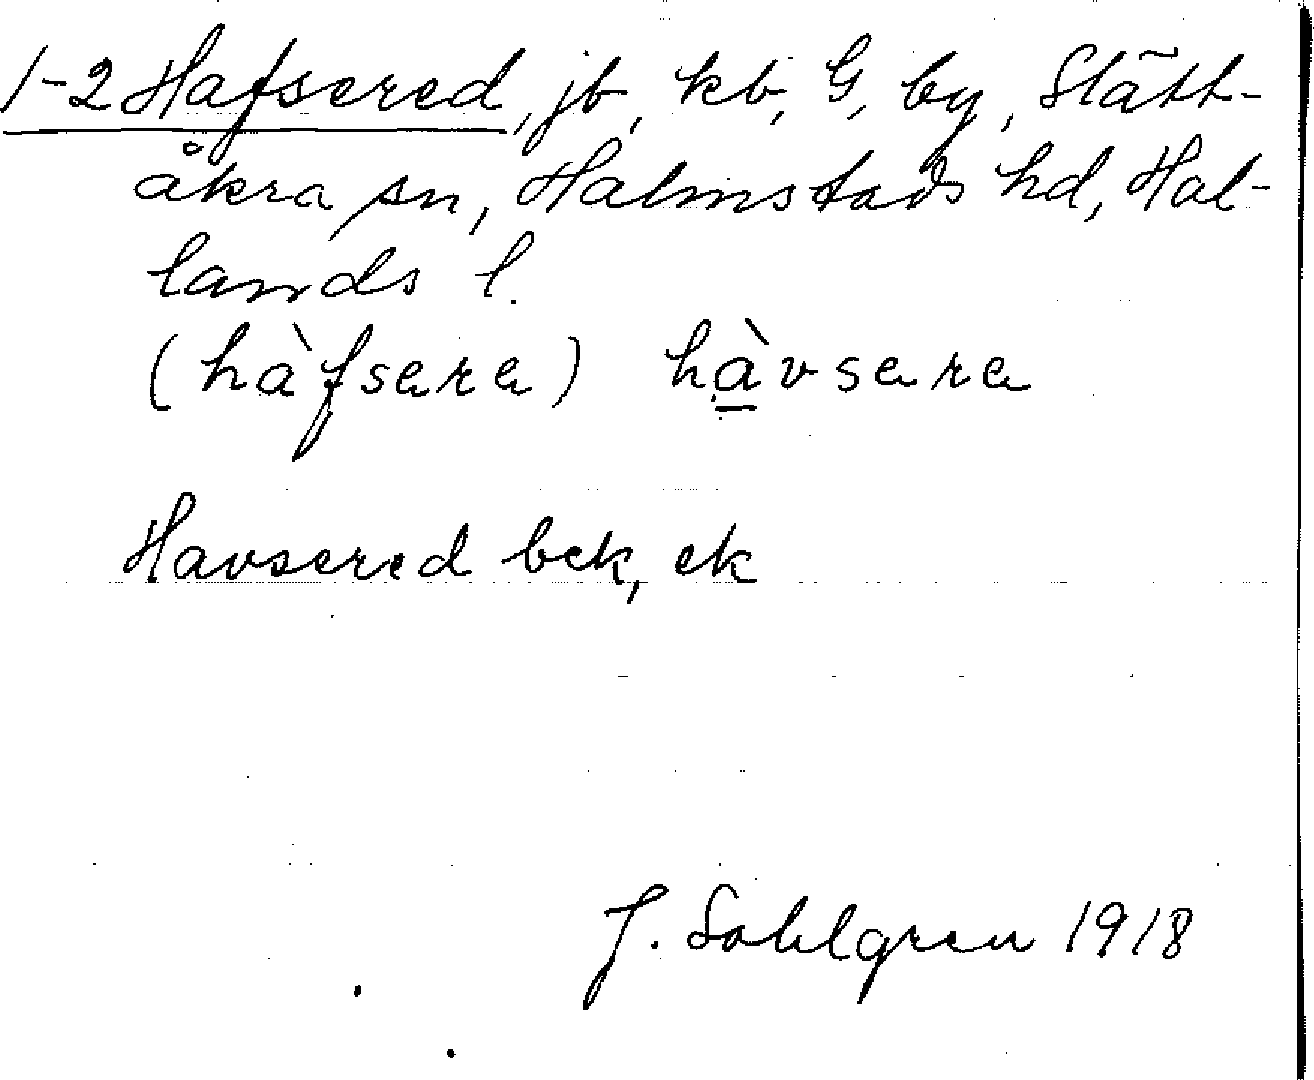 1-2 Hafsered, jb, kb, G, by, Slätt-
åkra sn, Halmstads hd, Hal-
lands l.
(hàfsara) hàvsara
Havsered bek, ek
J. Sahlgren 1918